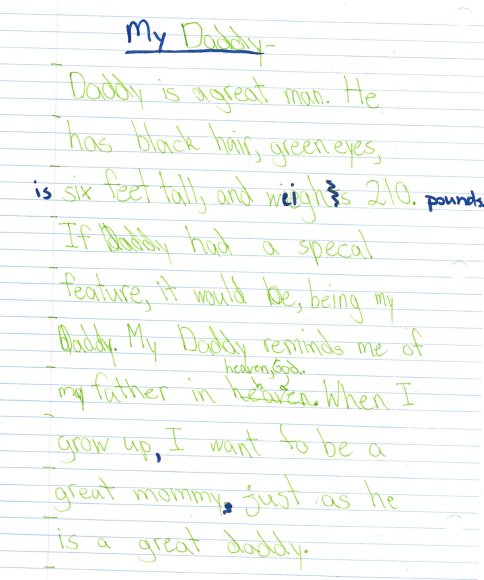 My Daddy-
Daddy is a great man. He
has black hair, green eyes,
is six feet tall, and weighs 210. pounds
If Daddy had a specal
feature, it would be, being my
Daddy. My Daddy reminds me of
heaven, God.
my father in heaven. When I
grow up, I want to be a
great mommy, just as he
is a great daddy.